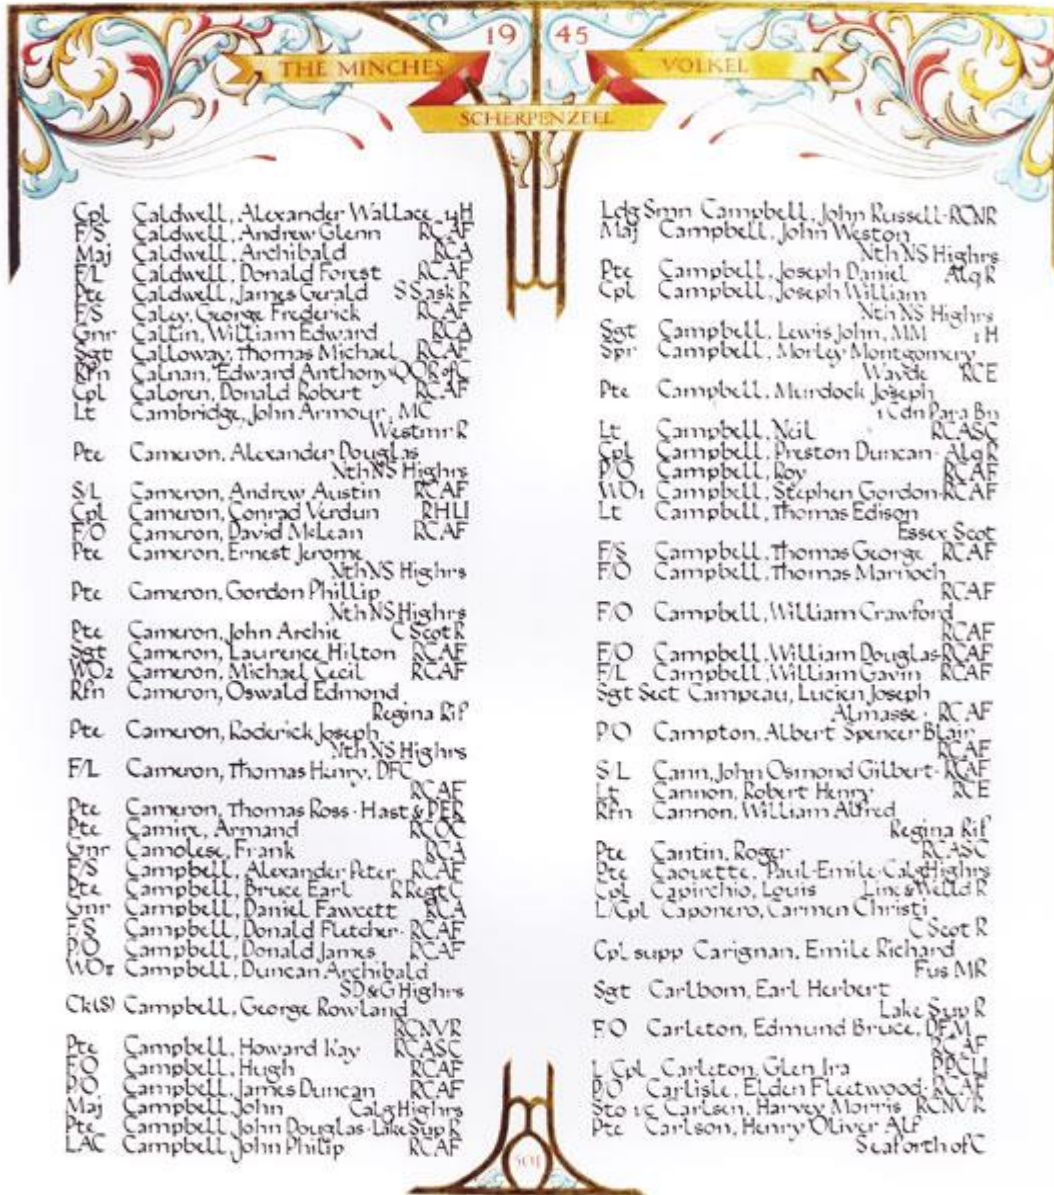 19 45
THE MINCHES
VOLKEL
SCHERPENZEEL
Cpl Caldwell, Alexander Wallace 14H
F/S Caldwell, Andrew Glenn RCAF
Maj Caldwell, Archibald RCA
F/L Caldwell, Donald Forest RCAF
Pte Caldwell, James Gerald S Sask R
F/S Caley, George Frederick RCAF
Gnr Callin, William Edward RCA
Sgt Calloway, Thomas Michael RCAF
Rfn Calnan, Edward Anthony QOR of C
Cpl Caloren, Donald Robert RCAF
Lt Cambridge, John Armour, MC
Westmr R
Pte Cameron, Alexander Douglas
Nth NS Highrs
S/L Cameron, Andrew Austin RCAF
Cpl Cameron, Conrad Verdun RHLI
F/O Cameron, David McLean RCAF
Pte Cameron, Ernest Jerome
Nth NS Highrs
Pte Cameron, Gordon Phillip
Nth NS Highrs
Pte Cameron, John Archie C Scot R
Sgt Cameron, Laurence Hilton RCAF
WO2 Cameron, Michael Cecil RCAF
Rfn Cameron, Oswald Edmond
Regina Rif
Pte Cameron, Roderick Joseph
Nth NS Highrs
F/L Cameron, Thomas Henry, DFC
RCAF
Pte Cameron, Thomas Ross · Hast & PER
Pte Camire, Armand RCOC
Gnr Camolese, Frank RCA
F/S Campbell, Alexander Peter RCAF
Pte Campbell, Bruce Earl R Regt C
Gnr Campbell, Daniel Fawcett RCA
F/S Campbell, Donald Fletcher · RCAF
P/O Campbell, Donald James RCAF
Campbell, Duncan Archibald
SD & G Highrs
Ck(S) Campbell, George Rowland
RCNVR
Pte Campbell, Howard Kay RCASC
F/O Campbell, Hugh RCAF
P/O Campbell, James Duncan RCAF
Maj Campbell, John Calg Highrs
Pte Campbell, John Douglas · Lake Sup R
LAC Campbell, John Philip RCAF
Ldg Smn Campbell, John Russell · RCNR
Maj Campbell, John Weston
Nth NS Highrs
Pte Campbell, Joseph Daniel Alq R
Cpl Campbell, Joseph William
Nth NS Highrs
Sgt Campbell, Lewis John, MM 1H
Spr Campbell, Morley Montgomery
Wayde RCE
Pte Campbell, Murdock Joseph
1 Cdn Para Bn
Lt Campbell, Neil RCASC
Cpl Campbell, Preston Duncan · Alq R
P/O Campbell, Roy RCAF
WO1 Campbell, Stephen Gordon · RCAF
Lt Campbell, Thomas Edison
Essex Scot
F/S Campbell, Thomas George RCAF
F/O Campbell, Thomas Marnoch
RCAF
F/O Campbell, William Crawford
RCAF
F/O Campbell, William Douglas · RCAF
F/L Campbell, William Gavin RCAF
Sgt Sect Campeau, Lucien Joseph
Almasse · RCAF
P/O Campton, Albert Spencer Blair
RCAF
S/L Cann, John Osmond Gilbert · RCAF
Lt Cannon, Robert Henry RCE
Rfn Cannon, William Alfred
Regina Rif
Pte Cantin, Roger RCASC
Pte Caouette, Paul-Emile · Calg Highrs
Cpl Capirchio, Louis Linc & Welld R
L/Cpl Caponero, Carmen Christi
C Scot R
Cpl supp Carignan, Emile Richard
Fus MR
Sgt Carlbom, Earl Herbert
Lake Sup R
F/O Carleton, Edmund Bruce, DFM
RCAF
L/Cpl Carleton, Glen Ira PPCLI
P/O Carlisle, Elden Fleetwood · RCAF
Sto 1c Carlsen, Harvey Morris RCNVR
Pte Carlson, Henry Oliver Alf
Seaforth of C
501